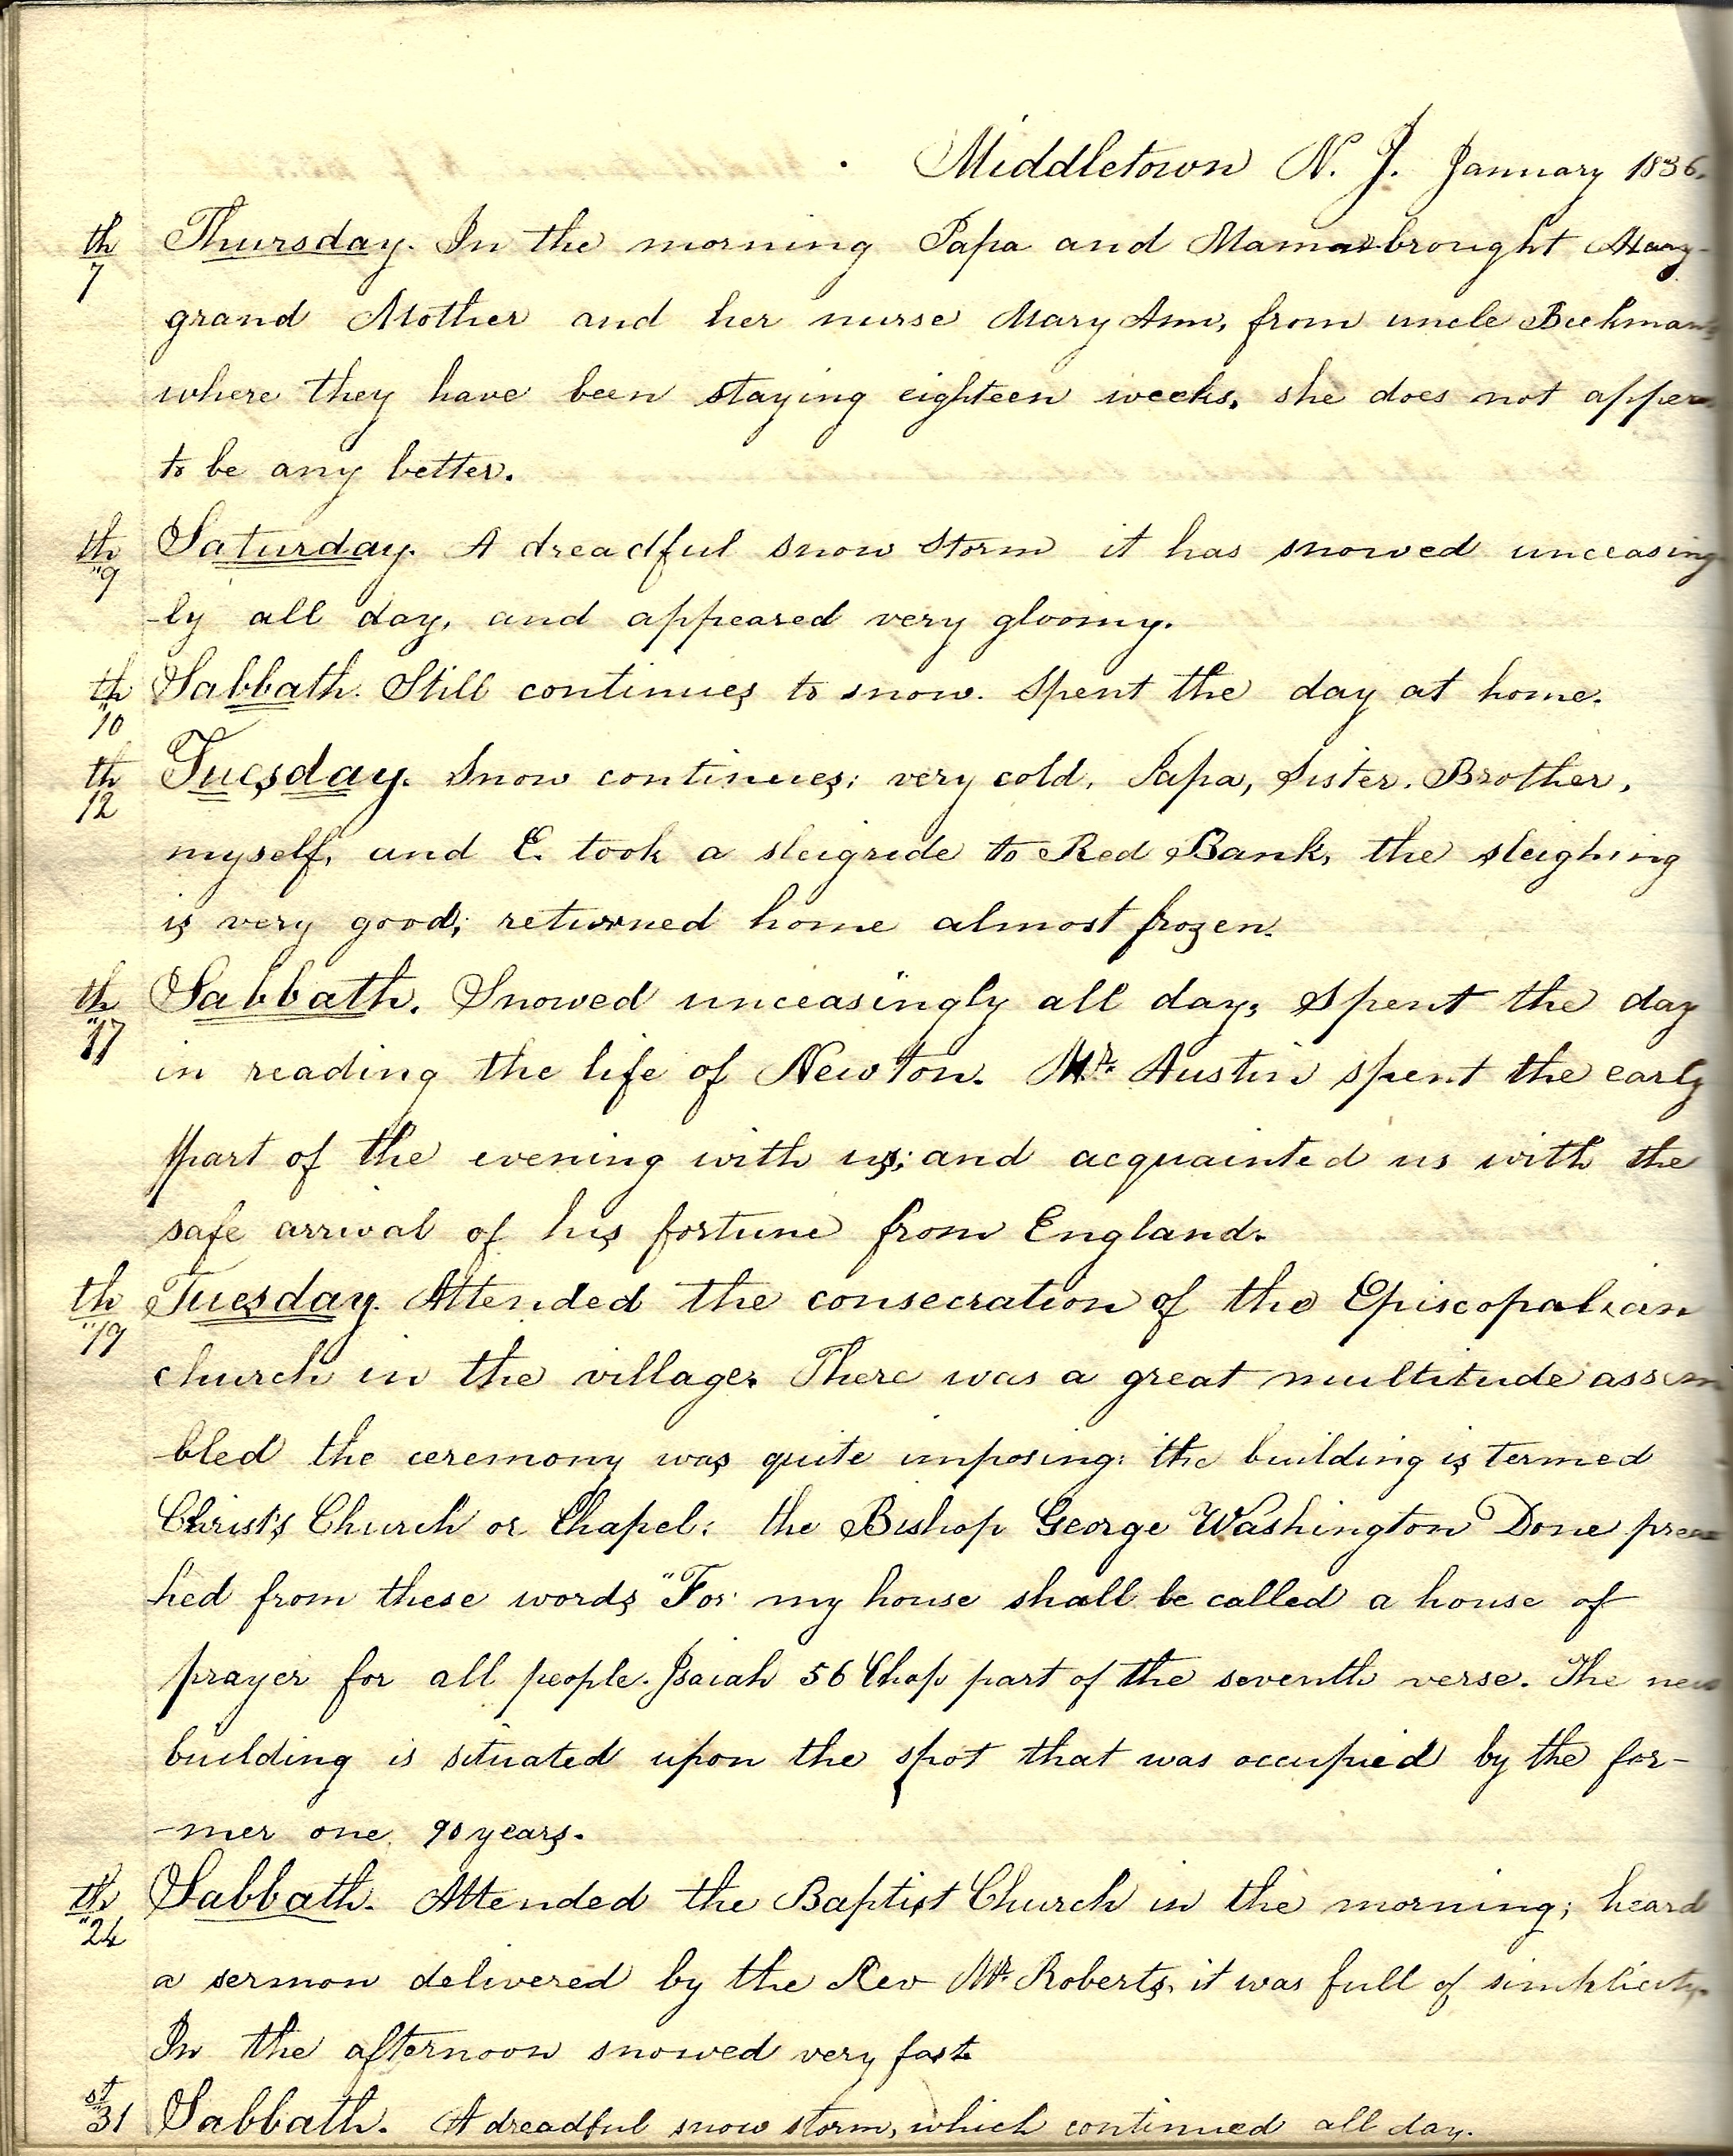 Middletown N. J. January 1836.
th 7 Thursday. In the morning Papa and Mama brought
grand Mother and her nurse Mary Ann, from uncle Beekmans
where they have been staying eighteen weeks, she does not appear
to be any better.
th "9 Saturday. A dreadful snow storm it has snowed unceasing
-ly all day, and appeared very gloomy.
th "10 Sabbath. Still continues to snow. Spent the day at home.
th 12 Tuesday. Snow continues; very cold, Papa, Sister, Brother,
myself, and E. took a sleigride to Red Bank, the sleighing
is very good; returned home almost frozen.
th "17 Sabbath. Snowed unceasingly all day, Spent the day
in reading the life of Newton. Mr. Austin spent the early
part of the evening with us; and acquainted us with the
safe arrival of his fortune from England.
th "19 Tuesday. Attended the consecration of the Episcopalian
church in the village. There was a great multitude assem
bled the ceremony was quite imposing: the building is termed
Christ's Church or Chapel: the Bishop George Washington Done preac
hed from these words "For my house shall be called a house of
prayer for all people. Isaiah 56 Chap part of the seventh verse. The new
building is situated upon the spot that was occupied by the for-
-mer one 90 years.
th "24 Sabbath. Attended the Baptist Church in the morning; heard
a sermon delivered by the Rev Mr. Roberts, it was full of simplicity.
In the afternoon snowed very fast.
st "31 Sabbath. A dreadful snow storm, which continued all day.